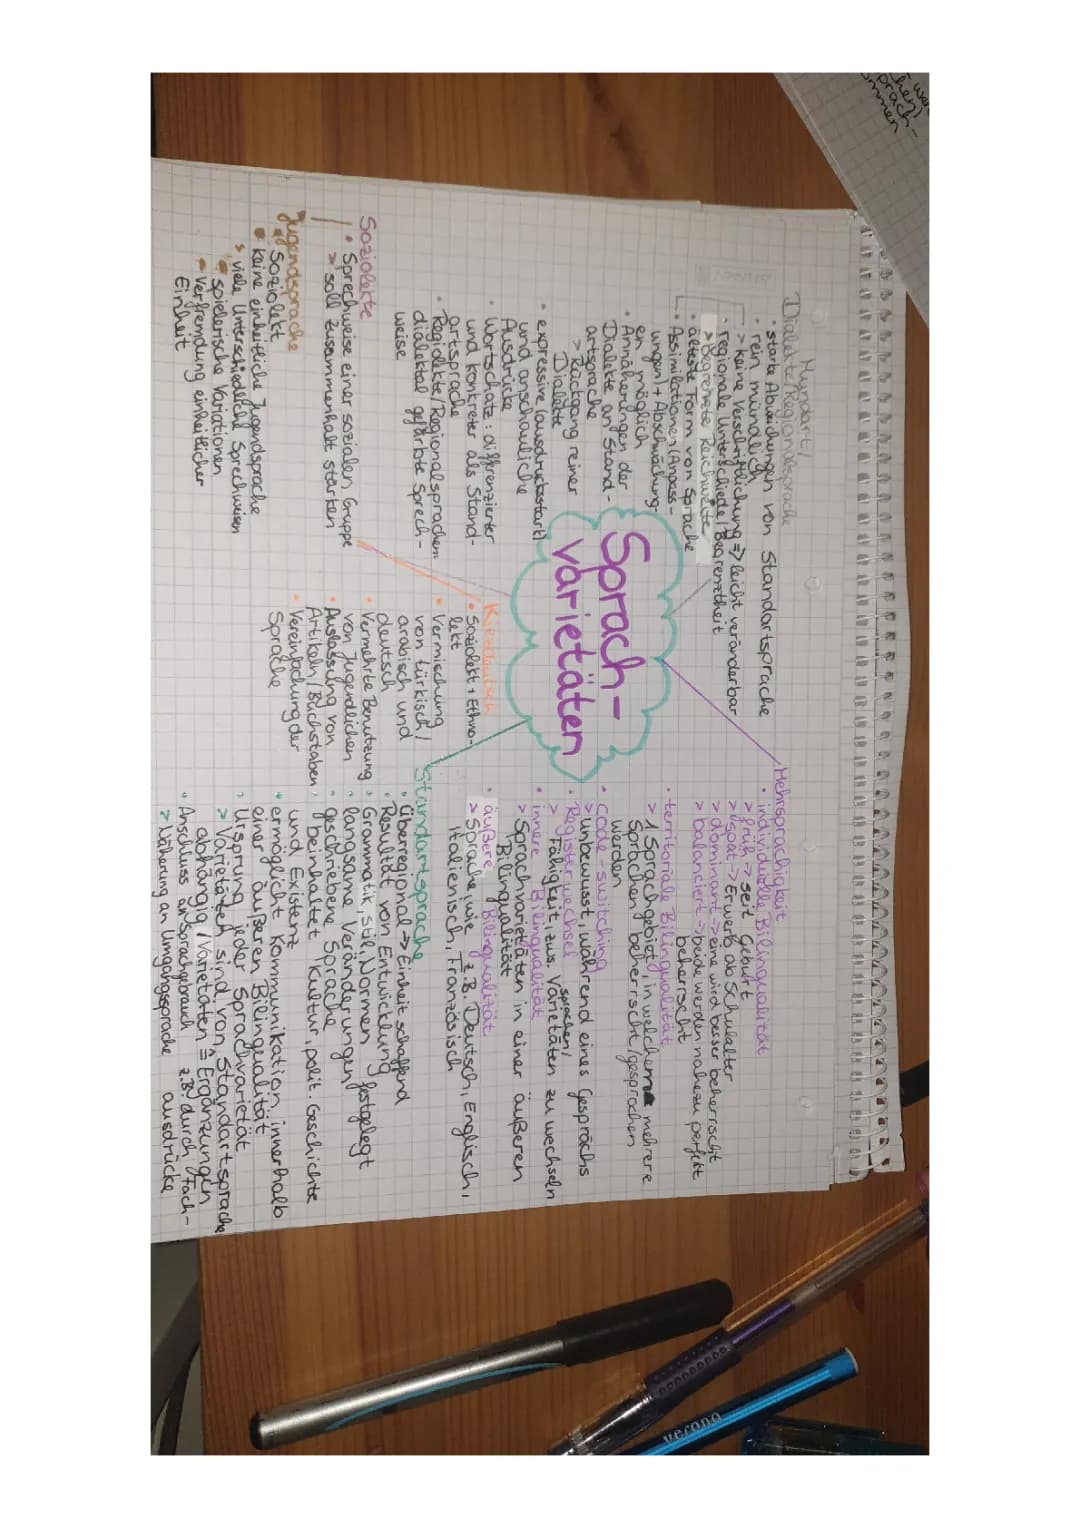 Sprach-
varietäten
Mundart/
Dialekte/Regionalsprache
• starke Abweichungen von Standartsprache
• rein mündlich
> keine Verschriftlichung => leicht veränderbar
• regionale Unterschiede/Begrenztheit
> begrenzte Reichweite
• älteste Form von Sprache
• Assimilationen (Anpass-
ungen) + Abschwächung-
en möglich
• Annäherungen der
Dialekte an Stand-
artsprache
> Rückgang reiner
Dialekte
• expressive (ausdrucksstark)
und anschauliche
Ausdrücke
• Wortschatz: differenzierter
und konkreter als Stand-
artsprache
• Regiolekte/Regionalsprachen
dialektal gefärbte Sprech-
weise
Soziolekte
• Sprechweise einer sozialen Gruppe
> soll zusammenhalt stärken
Jugendsprache
• Soziolekt
• keine einheitliche Jugendsprache
> viele Unterschiedliche Sprechweisen
• spielerische Variationen
• Verfremdung einheitlicher
Einheit
Kiezdeutsch
• Soziolekt + Ethno-
lekt
• Vermischung
von türkisch/
arabisch und
deutsch
• Vermehrte Benutzung
von Jugendlichen
• Auslassung von
Artikeln/Buchstaben
• Vereinfachung der
Sprache
Mehrsprachigkeit
• individuelle Bilingualität
> früh -> seit Geburt
> spät -> Erwerb ab Schulalter
> dominant -> eine wird besser beherrscht
> balanciert -> beide werden nahezu perfekt
beherrscht
• territoriale Bilingualität
> 1 Sprachgebiet, in welchem mehrere
Sprachen beherrscht/gesprochen
werden
• Code-switching
> unbewusst, während eines Gesprächs
• Registerwechsel
sprachen/
> Fähigkeit, zws. Varietäten zu wechseln
• innere Bilingualität
> Sprachvarietäten in einer äußeren
Bilingualität
• äußere Bilingualität
> Sprache, wie z.B. Deutsch, Englisch,
Italienisch, Französisch
Standartsprache
• Überregional -> Einheit schaffend
• Resultat von Entwicklung
> Grammatik, stil, Normen festgelegt
• langsame Veränderungen
• geschriebene Sprache
• beinhaltet Kultur, polit. Geschichte
und Existenz
• ermöglicht Kommunikation innerhalb
einer äußeren Bilingualität
• Ursprung jeder Sprachvarietät
> Varietäten sind von Standartsprache
abhängig/Varietäten = Ergänzungen
• Anschluss an Sprachgebrauch z.B. durch Fach-
> Näherung an Umgangssprache ausdrücke
verono